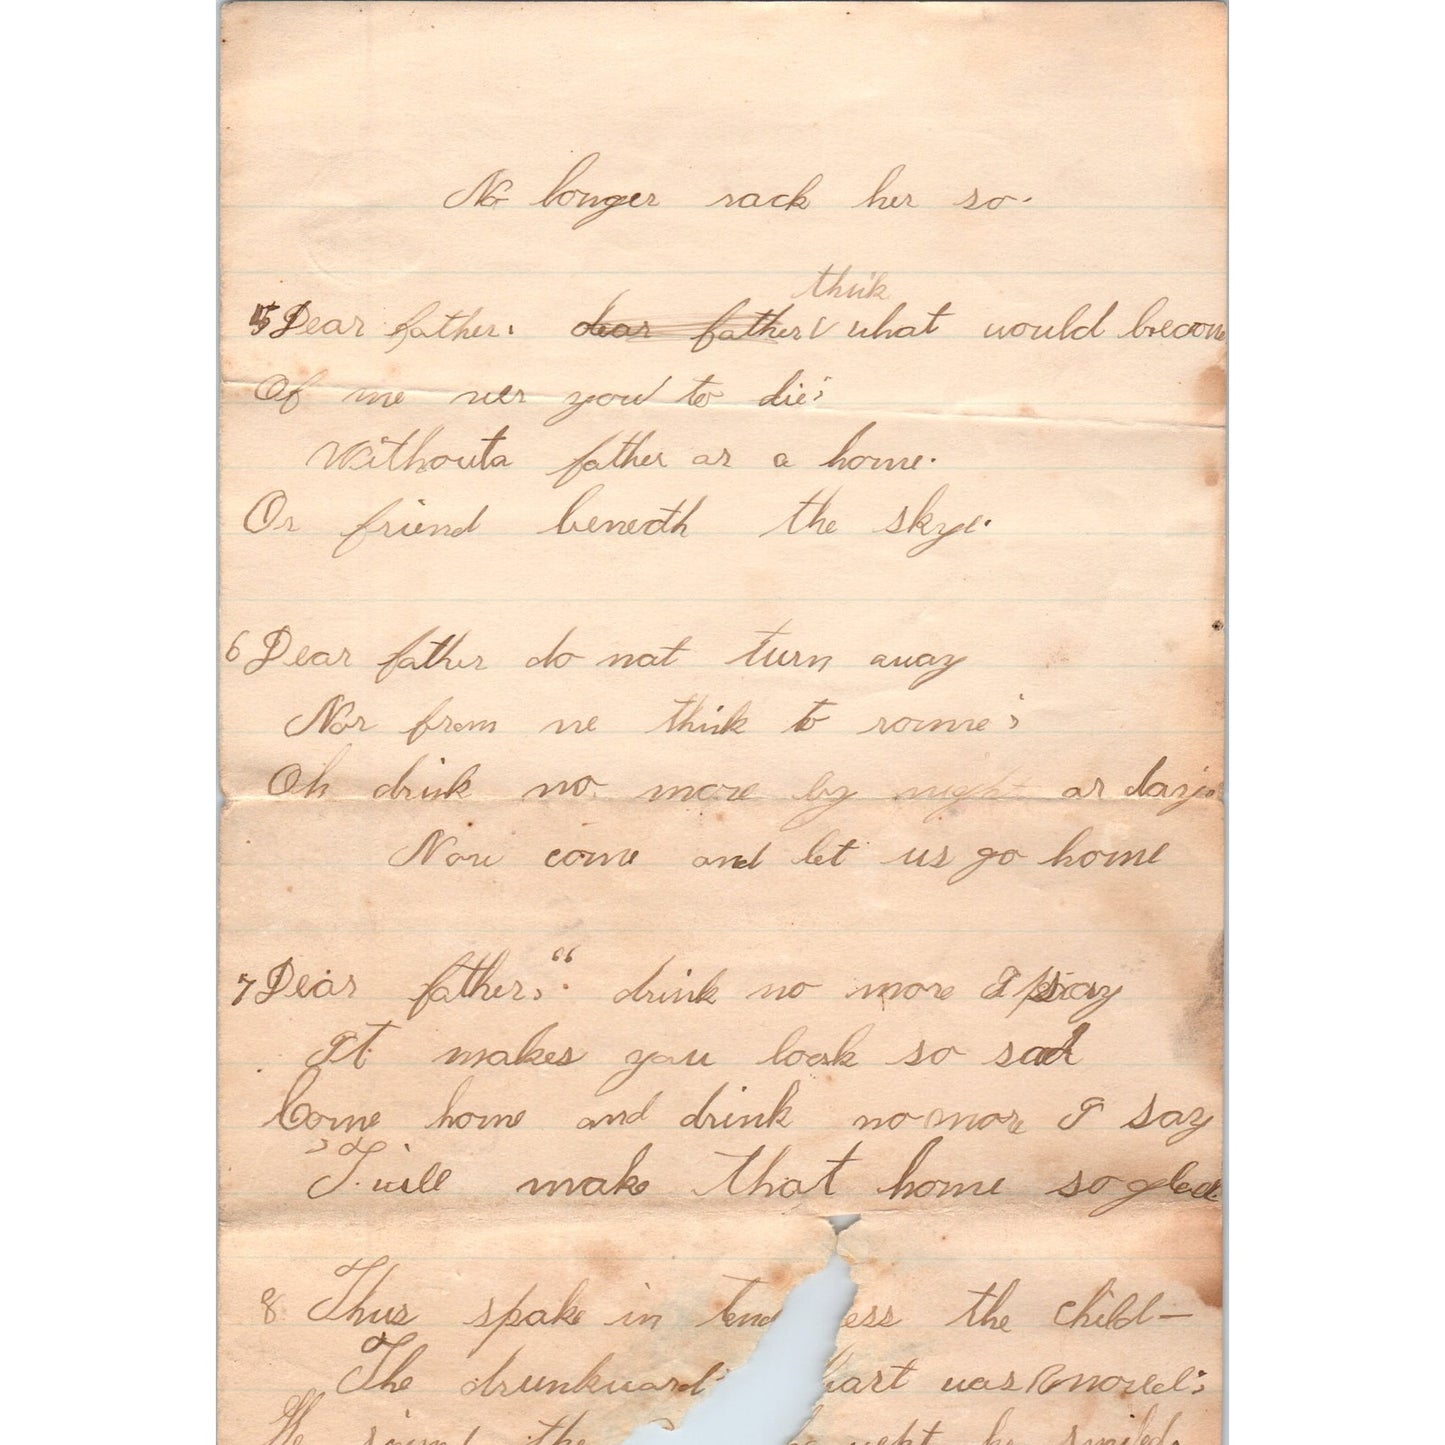 No longer rack her so.
think
5 Dear father: dear father what would become
Of me wer you to die;
Withouta father or a home.
Or friend beneath the skye.
6 Dear father do not turn away
Nor from me think to roame;
Oh drink no more by night or day;
Now come and let us go home
7 Dear father, drink no more I say
It makes you look so sad
Come home and drink no more I say
I will make that home so glad
8 Thus spake in tend ess the child—
The drunkward art was moved;
He the wept he smiled